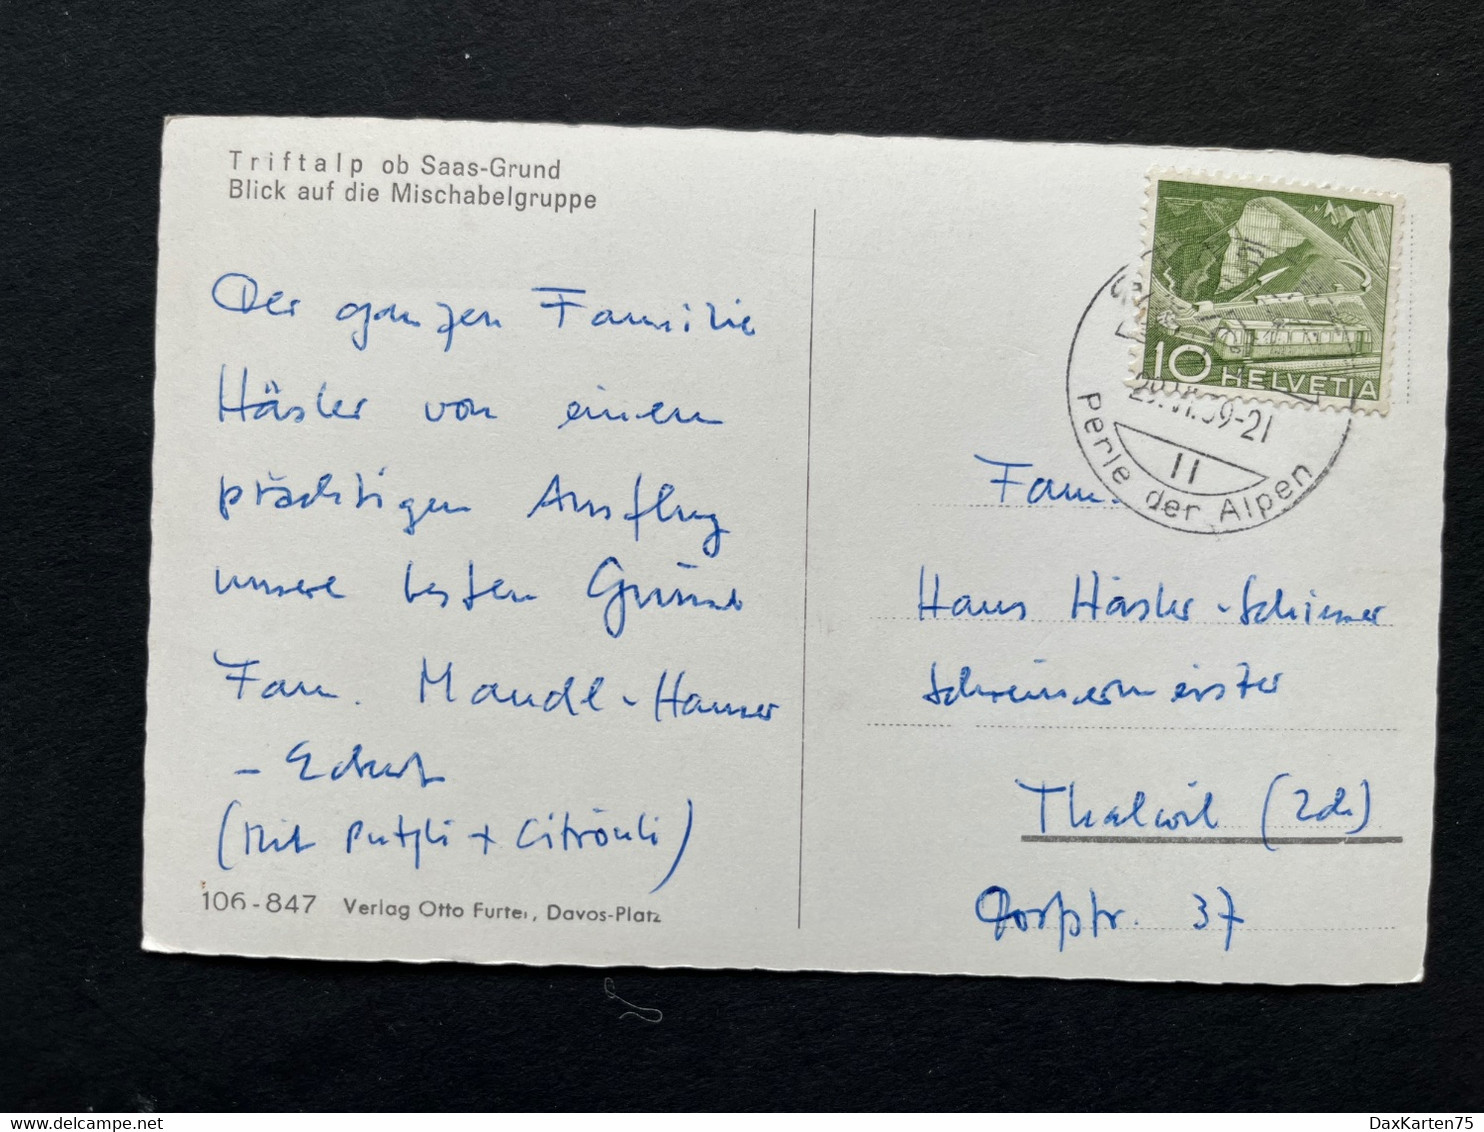 Triftalp ob Saas-Grund
Blick auf die Mischabelgruppe
Der ganzen Familie
Häsler von einem
prächtigen Ausflug
unsere besten Grüsse
Fam. Mandl-Hauser
(Mit Putzli + Citrönli)
106-847 Verlag Otto Furter, Davos-Platz
10 HELVETIA
-21
11
Perle der Alpen
Fam.
Hans Häsler-Schiesser
Schreinermeister
Thalwil (Zch)
Dorfstr. 37
DaxKarten75
delcampe.net